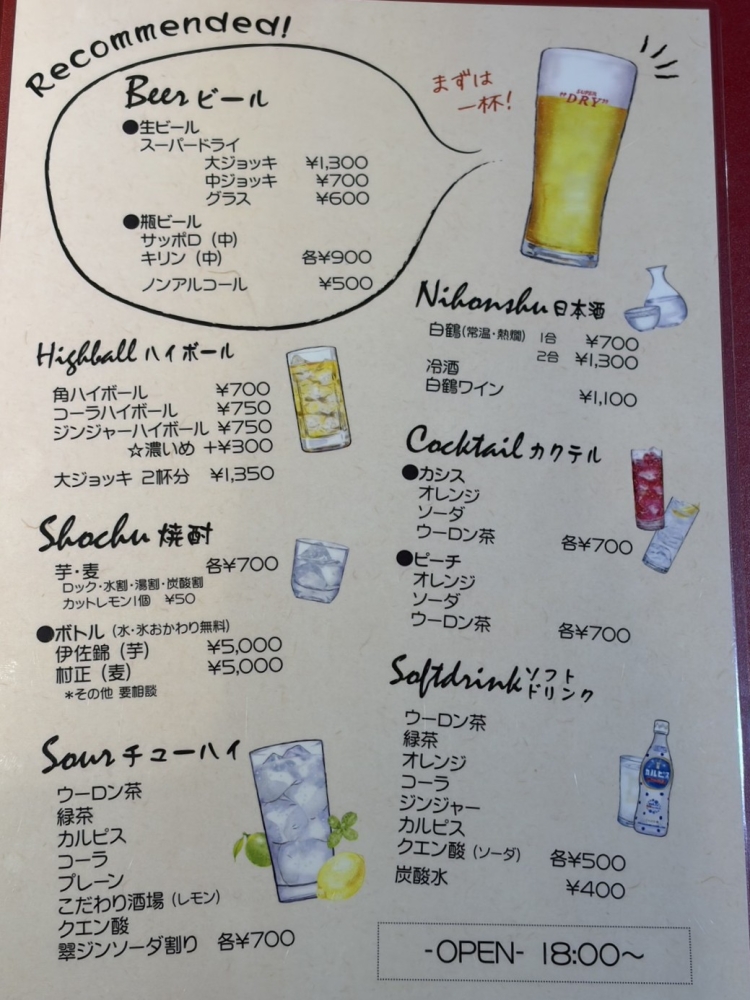 Recommended!
Beer ビール
●生ビール
スーパードライ
大ジョッキ ¥1,300
中ジョッキ ¥700
グラス ¥600
●瓶ビール
サッポロ (中)
キリン (中) 各¥900
ノンアルコール ¥500
まずは
一杯!
SUPER
"DRY"
Highball ハイボール
角ハイボール ¥700
コーラハイボール ¥750
ジンジャーハイボール ¥750
☆濃いめ +¥300
大ジョッキ 2杯分 ¥1,350
Shochu 焼酎
芋・麦 各¥700
ロック・水割・湯割・炭酸割
カットレモン1個 ¥50
●ボトル (水・氷おかわり無料)
伊佐錦 (芋) ¥5,000
村正 (麦) ¥5,000
*その他 要相談
Sour チューハイ
ウーロン茶
緑茶
カルピス
コーラ
プレーン
こだわり酒場 (レモン)
クエン酸
翠ジンソーダ割り 各¥700
Nihonshu 日本酒
白鶴(常温・熱燗) 1合 ¥700
2合 ¥1,300
冷酒
白鶴ワイン ¥1,100
Cocktail カクテル
●カシス
オレンジ
ソーダ
ウーロン茶 各¥700
●ピーチ
オレンジ
ソーダ
ウーロン茶 各¥700
Softdrink ソフト
ドリンク
ウーロン茶
緑茶
オレンジ
コーラ
ジンジャー
カルピス
クエン酸 (ソーダ) 各¥500
炭酸水 ¥400
カルピス
-OPEN- 18:00～